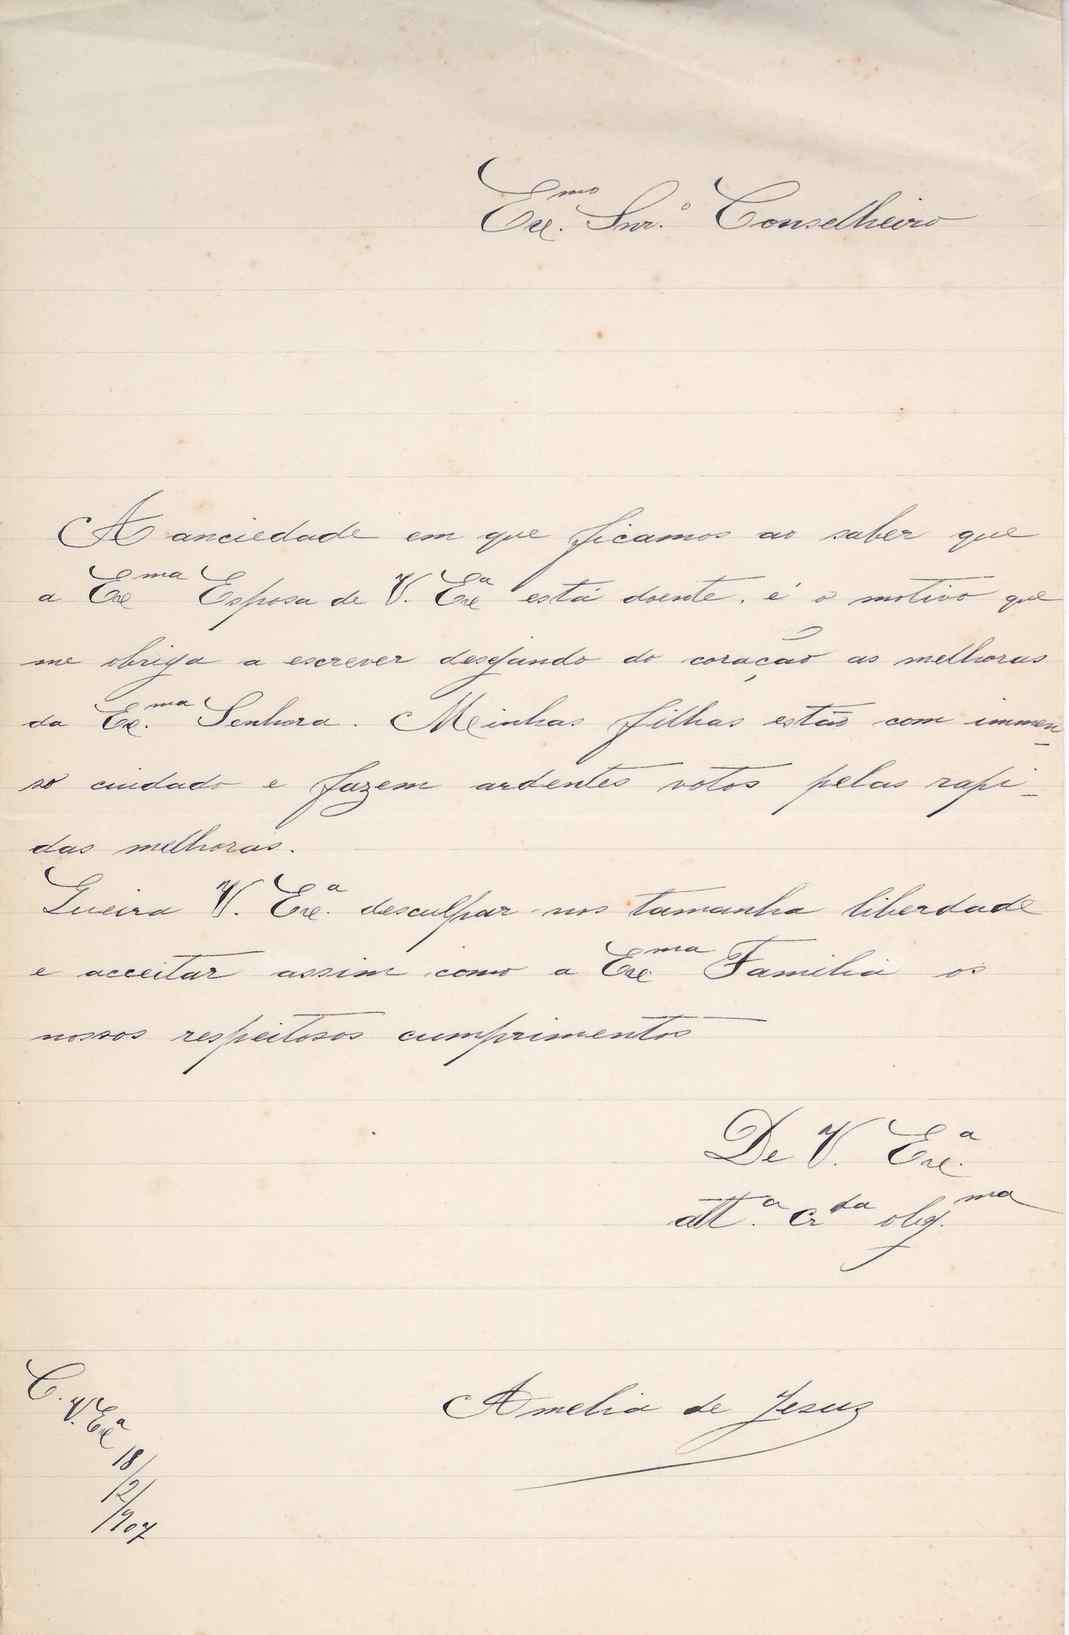 Exc.mo Snr.o Conselheiro
A anciedade em que ficamos ao saber que
a Exc.ma Esposa de V. Exc.a está doente. é o motivo que
me obriga a escrever desejando do coração as melhoras
da Ex.ma Senhora. Meinhas filhas estão com immen
so cuidado e fazem ardentes votos pelas rapi-
das melhoras.
Queira V. Exc.a desculpar-nos tamanha liberdade
e acceitar assim como a Exc.ma Familia os
nossos respeitosos cumprimentos
De V. Exc.a
att.a cr.da obg.ma
Amelia de Jesus
C. V. Exc.a
18/2/907